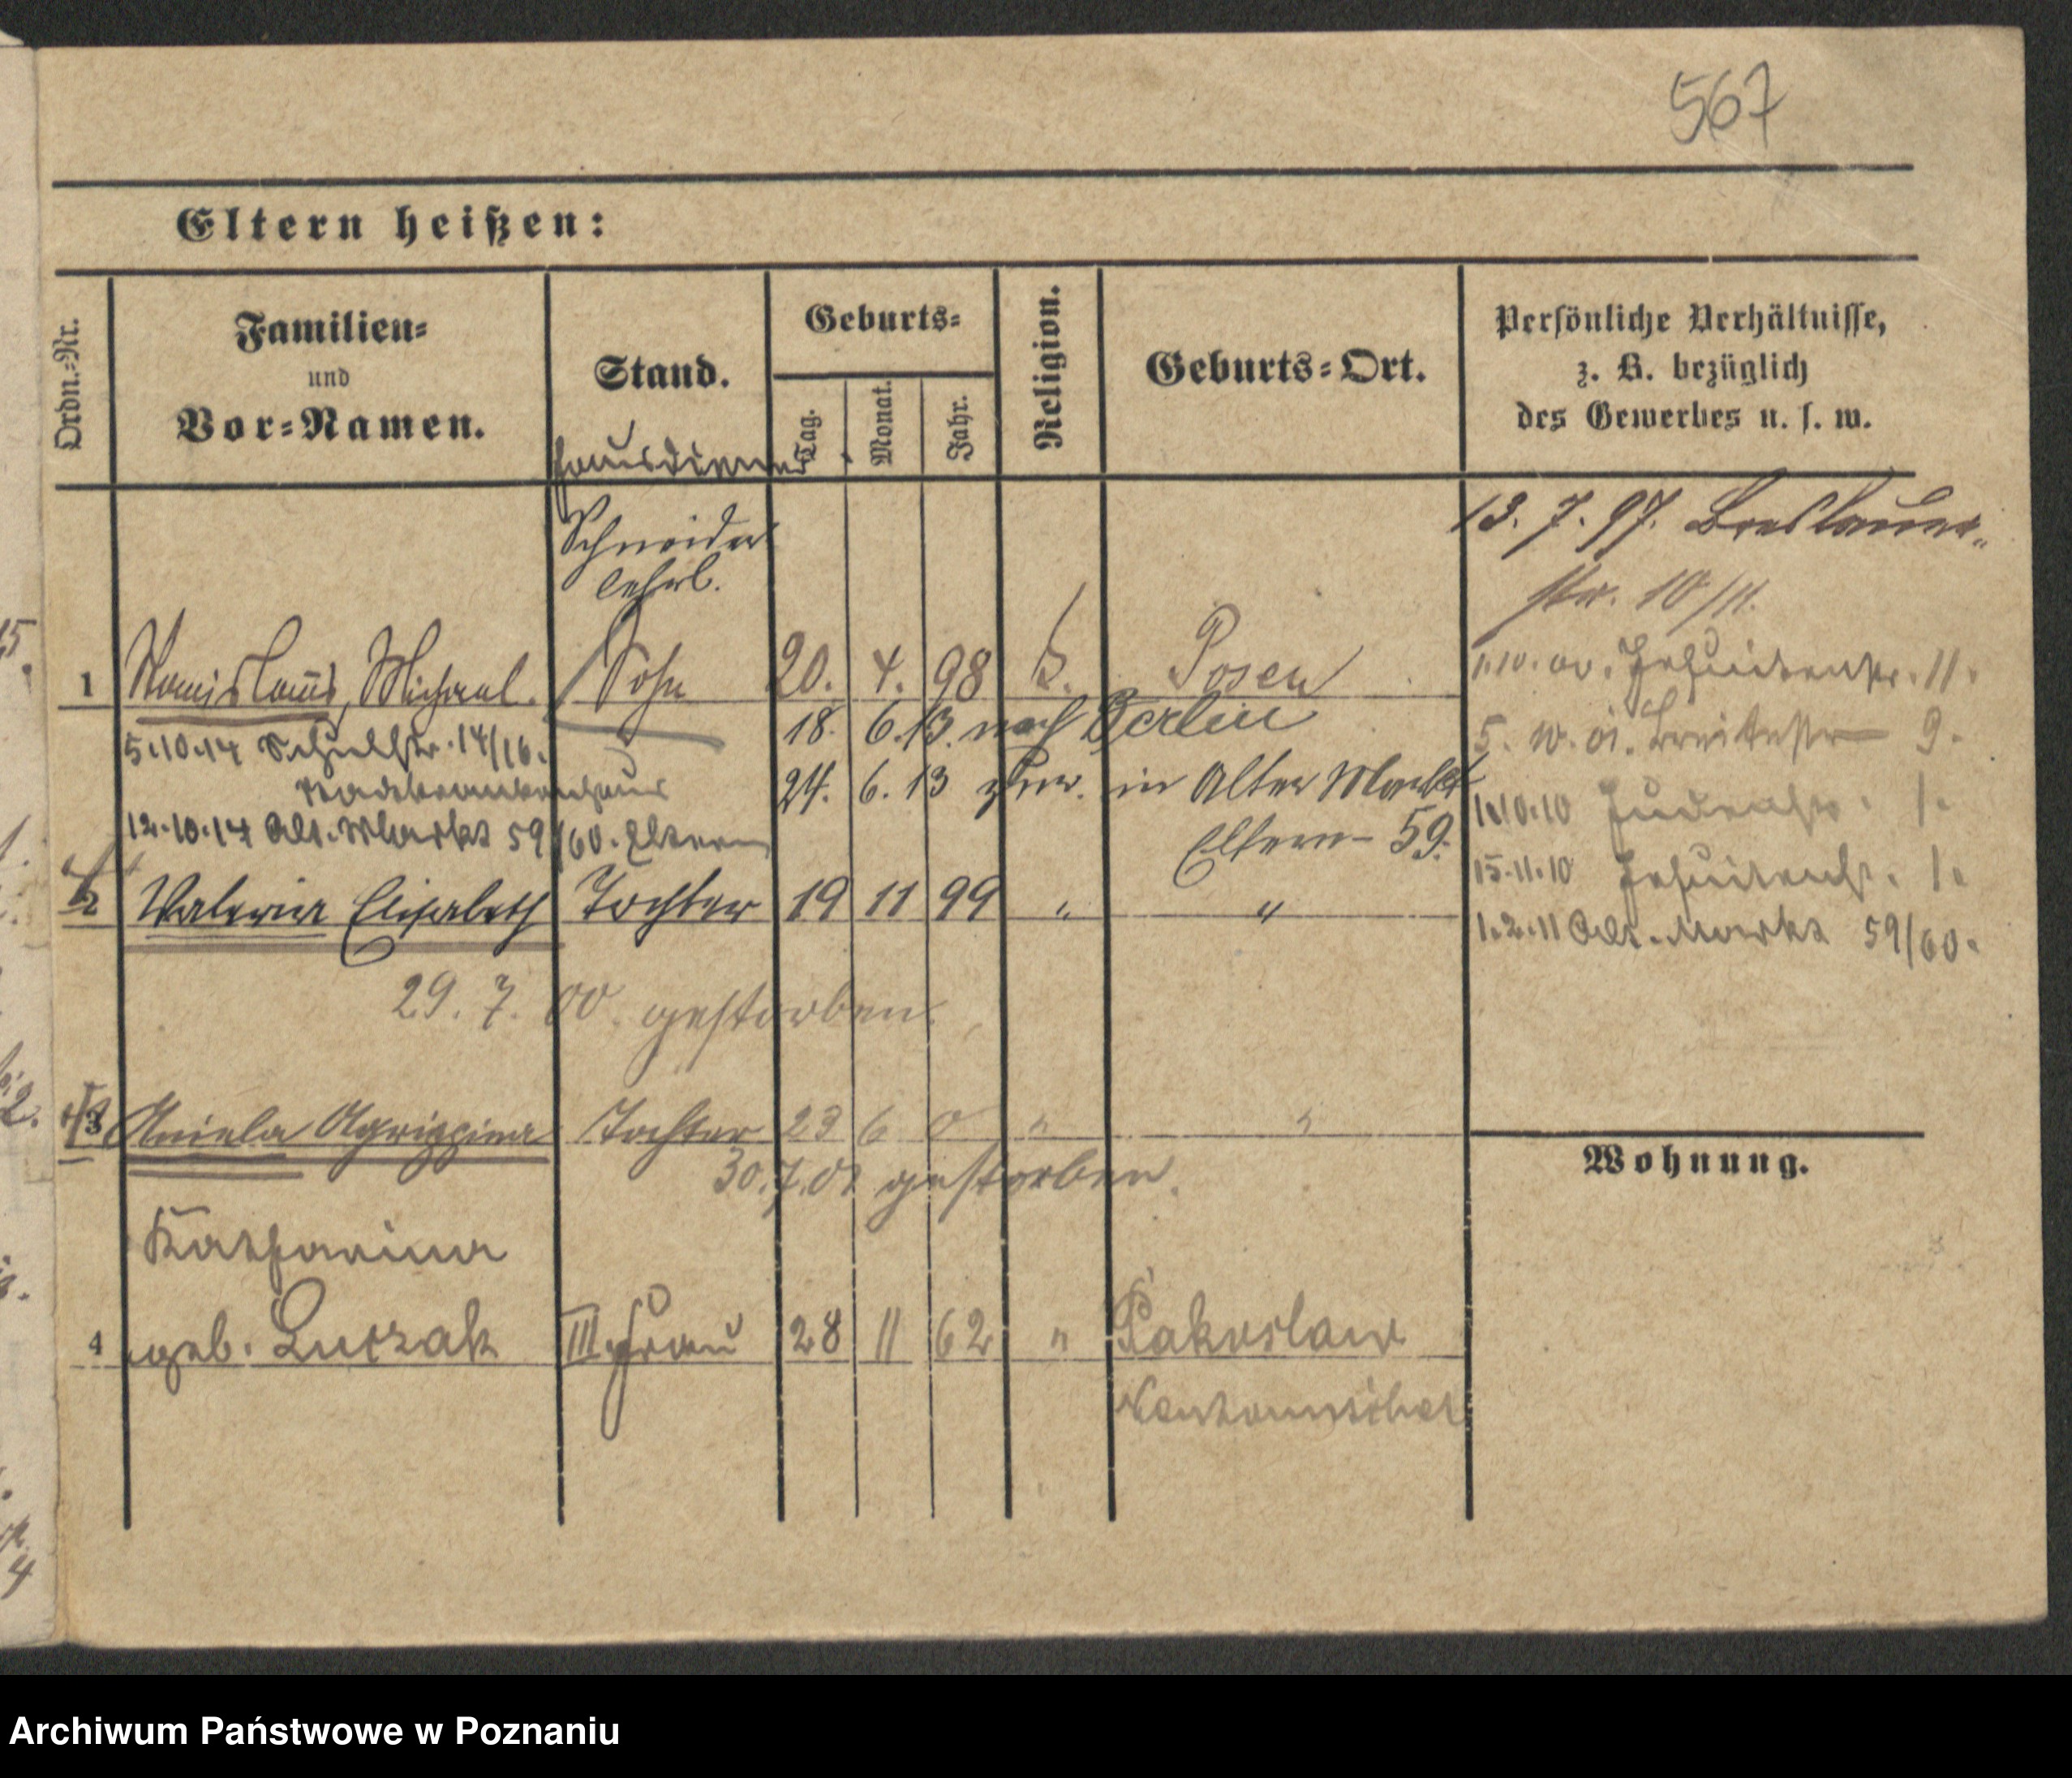 567
Eltern heißen:
Ordn.-Nr.
Familien-
und
Vor-Namen.
Stand.
Geburts-
Tag.
Monat.
Jahr.
Religion.
Geburts-Ort.
Persönliche Verhältnisse,
z. B. bezüglich
des Gewerbes u. s. w.
Hausdiener
Schneider
lehrl.
13. 7. 97. Breslauer-
str. 10/11.
1 Stanislaus, Michael. Sohn 20. 4. 98 k. Posen
Jesuitenstr. 11.
18. 6. 13. nach Berlin
5.10.14 Schulstr. 14/16.
Stadtkrankenhaus
5. 10. 01. Breitestr 9.
24. 6. 13 zur. in Alter Markt
Eltern - 59.
1.10.10 Judenstr. 1.
12.10.14 Alt. Markt 59/60. Eltern
15.11.10 Jesuitenstr. 1.
2 Valeria Elisabeth Tochter 19 11 99 " "
1.2.11 Alt. Markt 59/60.
29. 7. 00. gestorben.
3 Aniela Agrippina Tochter 23 6 0 " "
30. 7. 01 gestorben.
Wohnung.
Katharina
4 geb. Luczak III. Frau 28 11 62 " Pakoslaw
Neutomischel
Archiwum Państwowe w Poznaniu